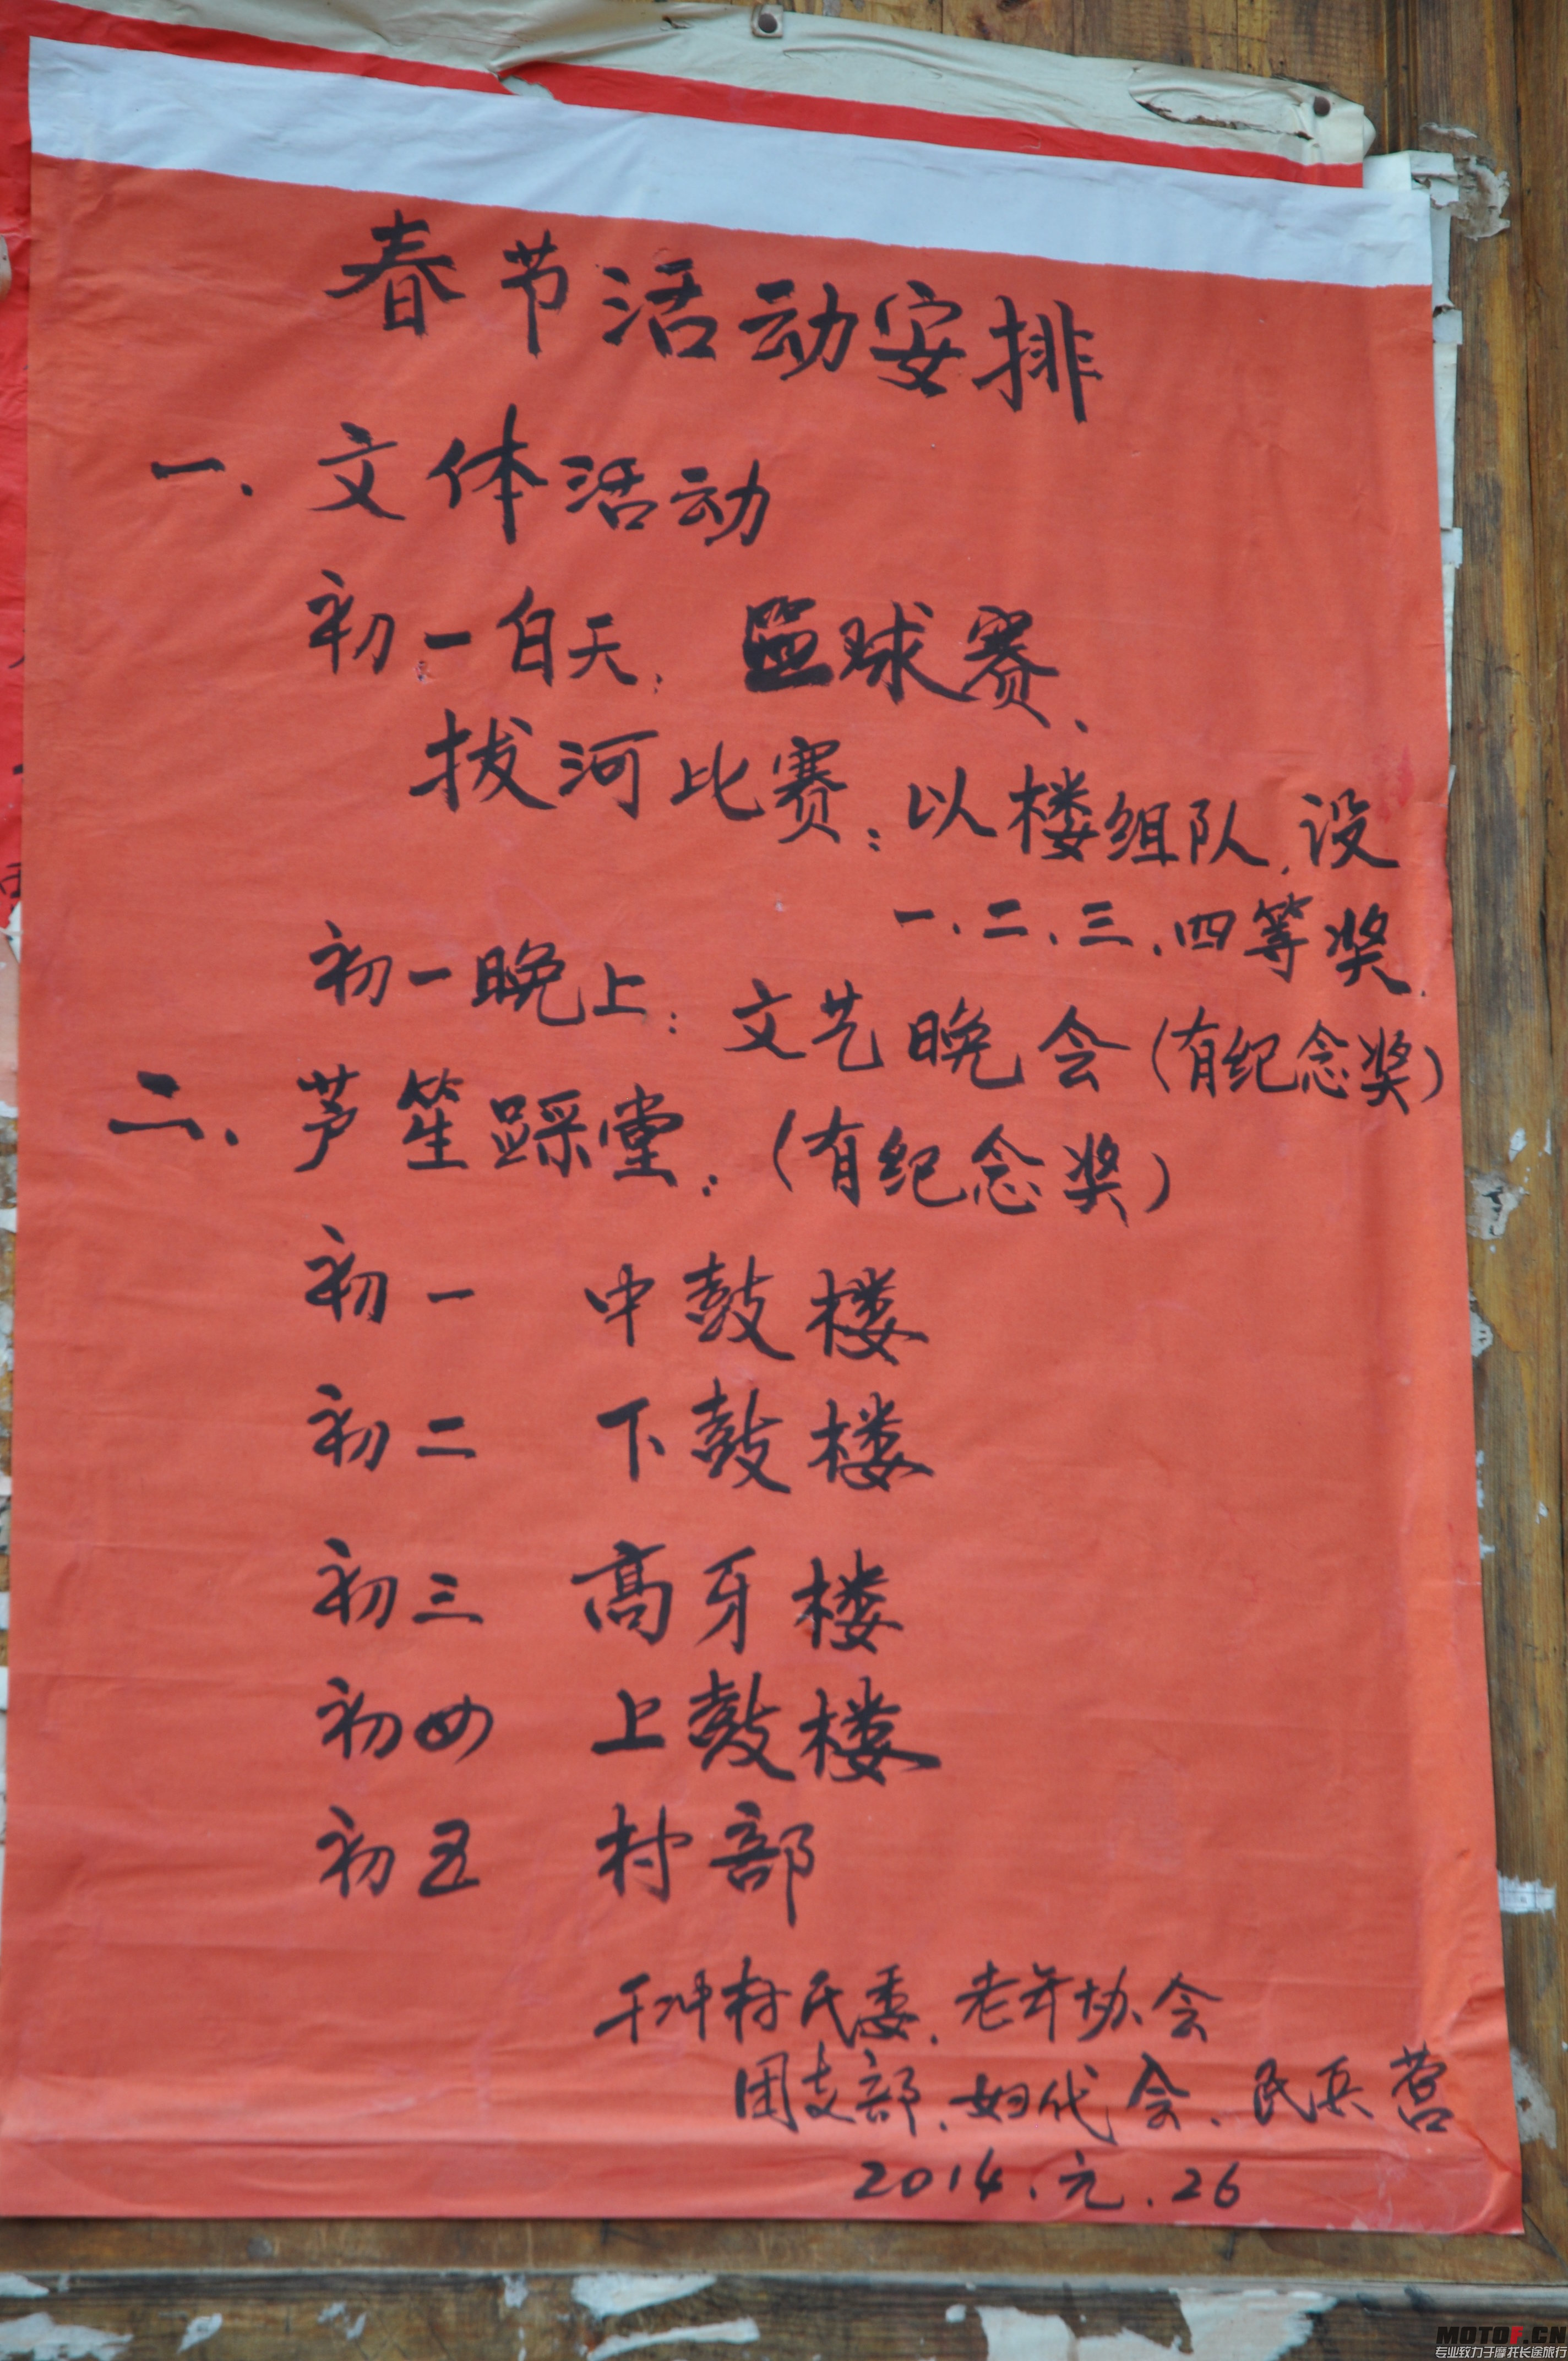 春节活动安排
一、文体活动
初一白天：篮球赛、
拔河比赛：以楼组队，设
一、二、三、四等奖.
初一晚上：文艺晚会（有纪念奖）
二、芦笙踩堂：（有纪念奖）
初一 中鼓楼
初二 下鼓楼
初三 高牙楼
初四 上鼓楼
初五 村部
干冲村民委、老年协会
团支部、妇代会、民兵营
2014.元.26
MOTOF.CN
专业致力于摩托长途旅行